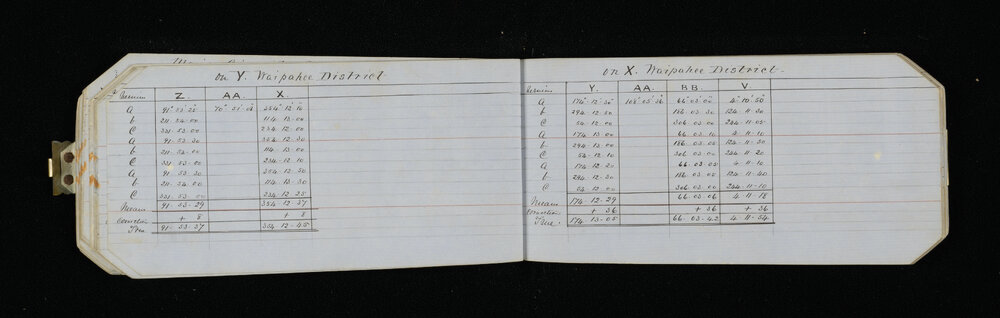 on Y. Waipahee District
Vernier Z. AA. X.
a 91° 53' 20" 70° 51' 354° 12' 10"
b 211. 54. 00 114. 13. 00
C 331. 53. 00 234. 12. 00
a 91. 53. 30 354. 12. 30
b 211. 54. 00 114. 13. 00
C 331. 53. 00 234. 12. 10
a 91. 53. 30 354. 12. 30
b 211. 54. 00 114. 13. 30
C 331. 53. 00 234. 12. 25
Mean 91. 53. 29 354. 12. 37
Correction + 8 + 8
True 91. 53. 37 354. 12. 45
on X. Waipahee District.
Vernier Y. AA. BB. V.
a 174° 12' 30" 108° 05' 66° 03' 00" 4° 10' 50"
b 294. 12. 50 186. 03. 30 124. 11. 30
C 54. 12. 00 306. 03. 00 244. 11. 05
a 174. 13. 00 66. 03. 10 4. 11. 10
b 294. 13. 00 186. 03. 05 124. 11. 30
C 54. 12. 10 306. 03. 00 244. 11. 20
a 174. 12. 20 66. 03. 05 4. 11. 10
b 294. 12. 30 186. 03. 00 124. 11. 40
C 54. 12. 00 306. 03. 00 244. 11. 10
Mean 174. 12. 29 66. 03. 06 4. 11. 18
Correction + 36 + 36 + 36
True 174. 13. 05 66. 03. 42 4. 11. 54